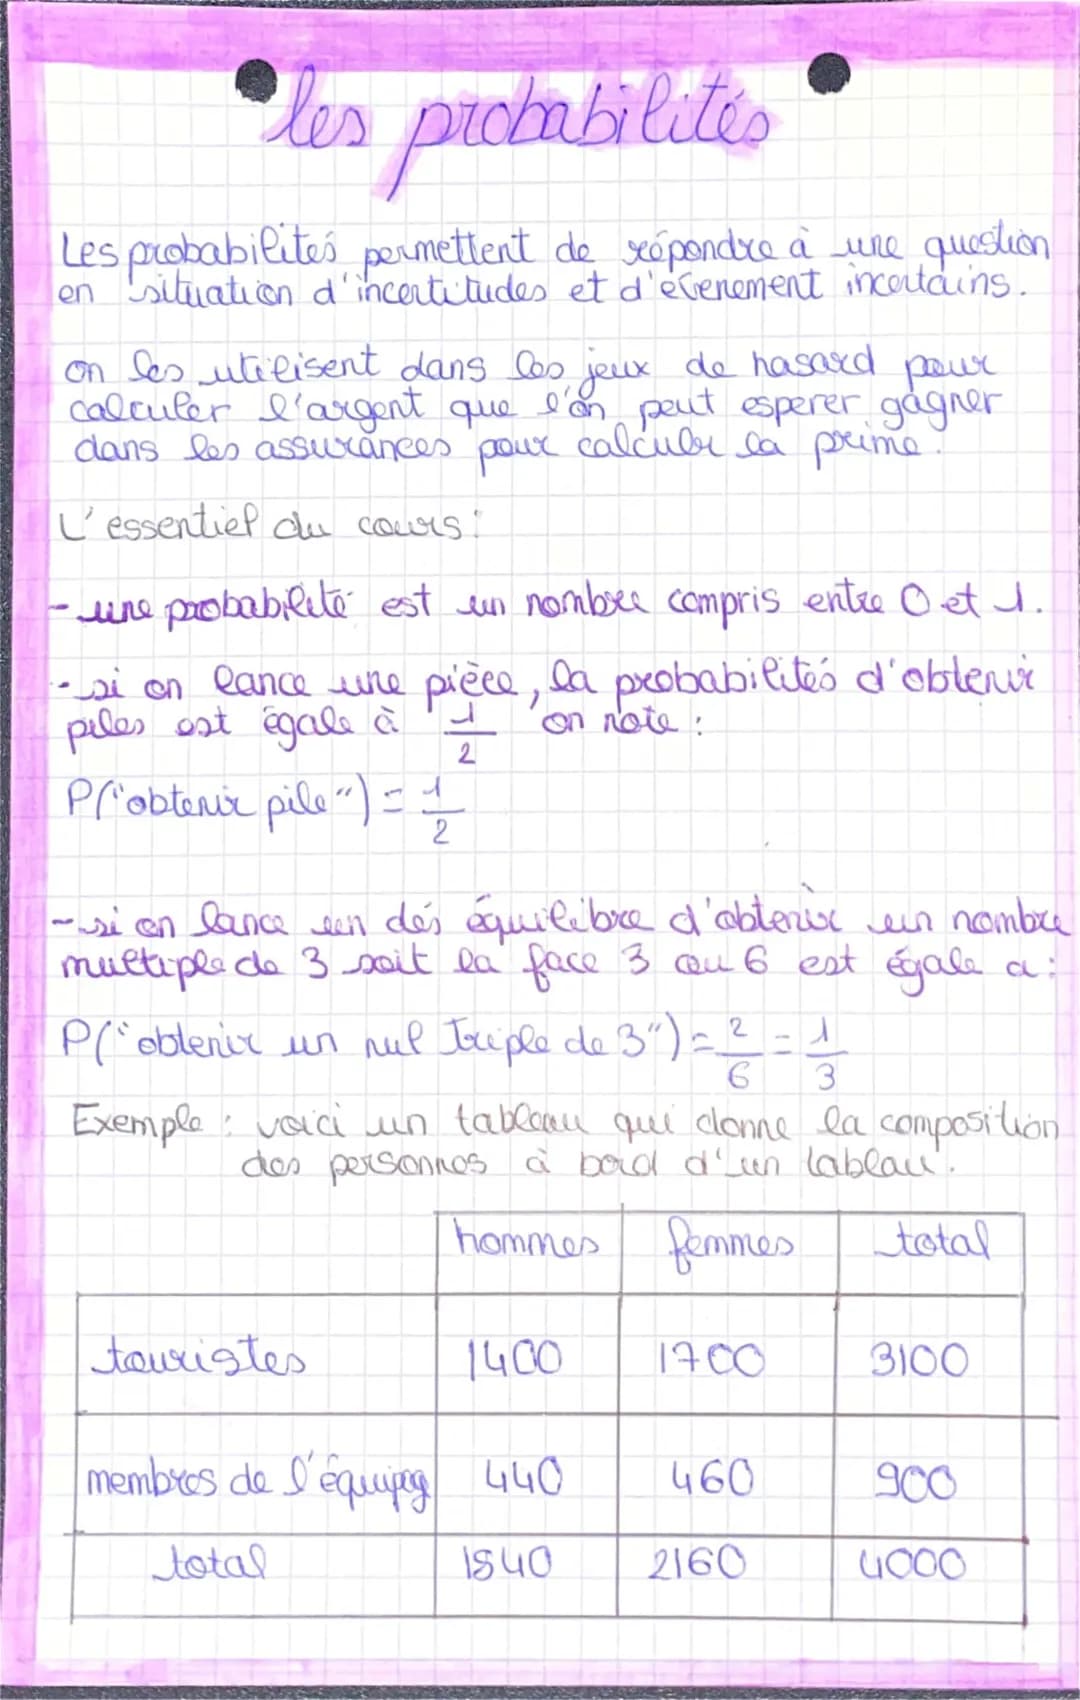 les probabilités
Les probabilités permettent de répondre à une question
en situation d'incertitudes et d'évenement incertains.
on les utilisent dans les jeux de hasard pour
calculer l'argent que l'on peut esperer gagner
dans les assurances pour calculer la prime.
L'essentiel du cours :
- une probabilité est un nombre compris entre 0 et 1.
- si on lance une pièce, la probabilités d'obtenir
piles est égale à 1/2 on note :
P("obtenir pile") = 1/2
- si on lance un dés équilibre d'obtenir un nombre
multiple de 3 soit la face 3 ou 6 est égale a :
P("obtenir un nul triple de 3") = 2/6 = 1/3
Exemple : voici un tableau qui donne la composition
des personnes à bord d'un tablau.
hommes femmes total
touristes 1400 1700 3100
membres de l'équipag 440 460 900
total 1840 2160 4000